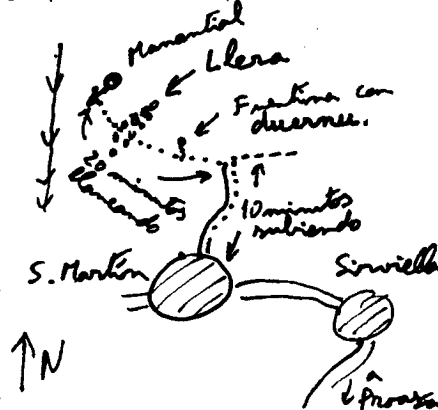 Manantial
Llera
Fuentina con
duernu.
20 minutos
llaneando
10 minutos
subiendo
S. Martín
Sirviella
N
a
Proaza